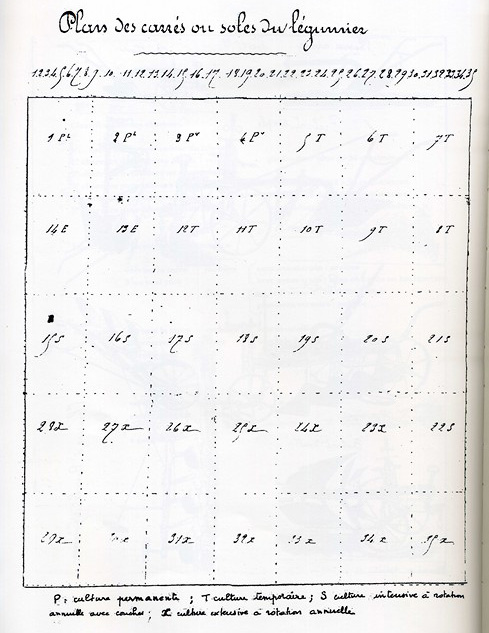 Plan des carrés ou soles du légumier
1 2 3 4 5 6 7 8 9 10 11 12 13 14 15 16 17 18 19 20 21 22 23 24 25 26 27 28 29 30 31 32 33 34 35
1 P 2 P 3 P 4 P 5 T 6 T 7 T
14 E 13 E 12 T 11 T 10 T 9 T 8 T
15 S 16 S 17 S 18 S 19 S 20 S 21 S
28 x 27 x 26 x 25 x 24 x 23 x 22 S
29 x x 31 x 32 x 33 x 34 x 35 x
P. culture permanente ; T culture temporaire ; S culture intensive à rotation
annuelle avec couches ; X culture extensive à rotation annuelle